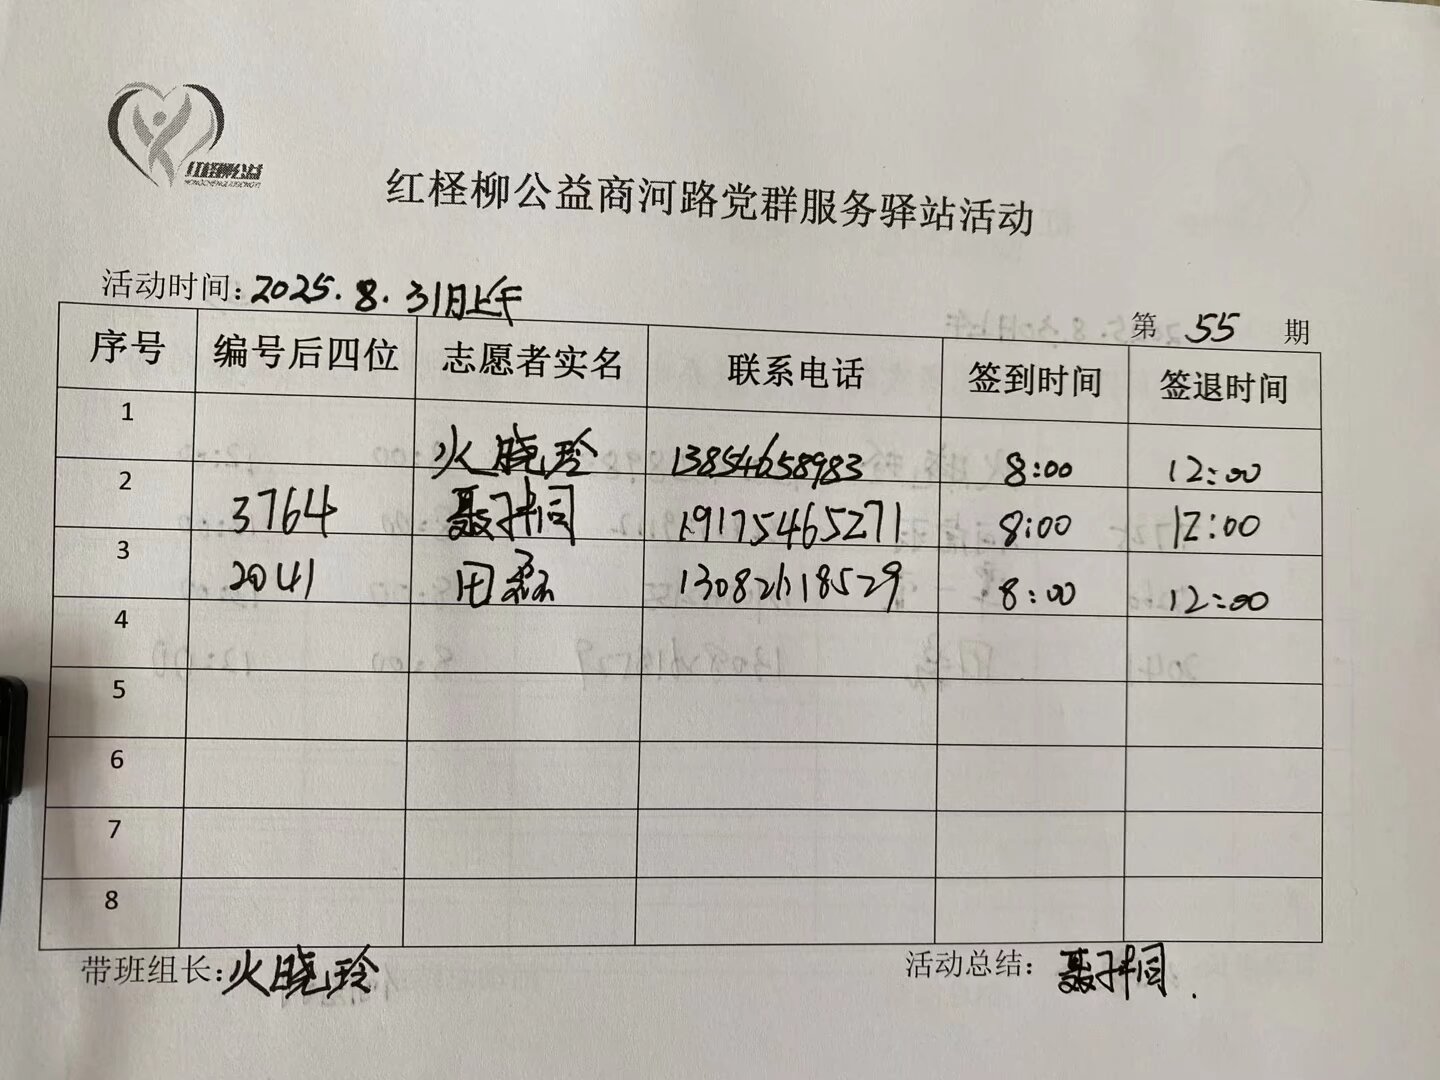 红柽柳公益
HONGCHENGLIUGONGYI
红柽柳公益商河路党群服务驿站活动
活动时间：2025.8.31日上午
第 55 期
序号 编号后四位 志愿者实名 联系电话 签到时间 签退时间
1 火晓玲 13854658983 8:00 12:00
2 3764 聂子桐 19175465271 8:00 12:00
3 2041 田 13082618529 8:00 12:00
4
5
6
7
8
带班组长：火晓玲
活动总结：聂子桐.